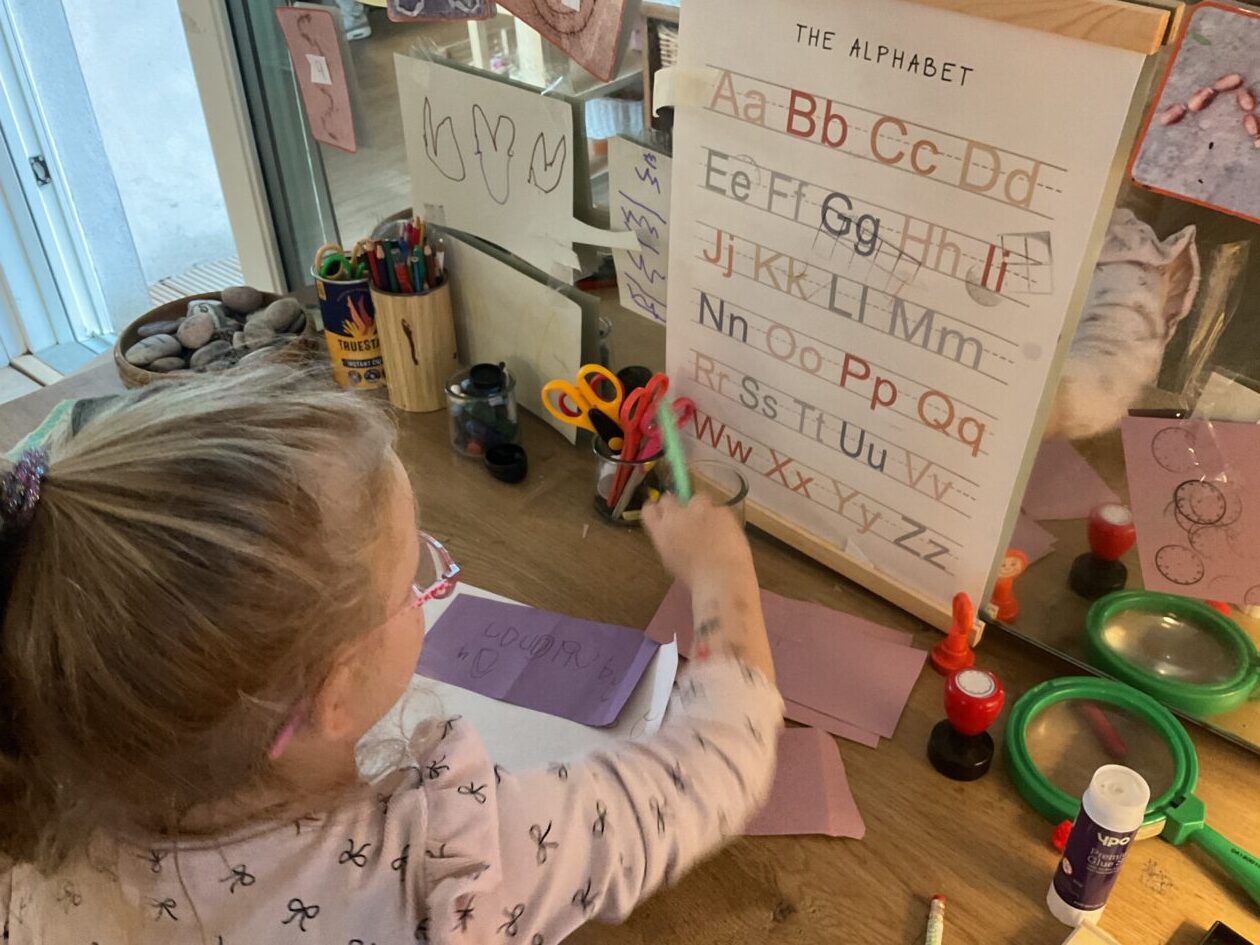 THE ALPHABET
Aa Bb Cc Dd
Ee Ff Gg Hh Ii
Jj Kk Ll Mm
Nn Oo Pp Qq
Rr Ss Tt Uu Vv
Ww Xx Yy Zz
YPO